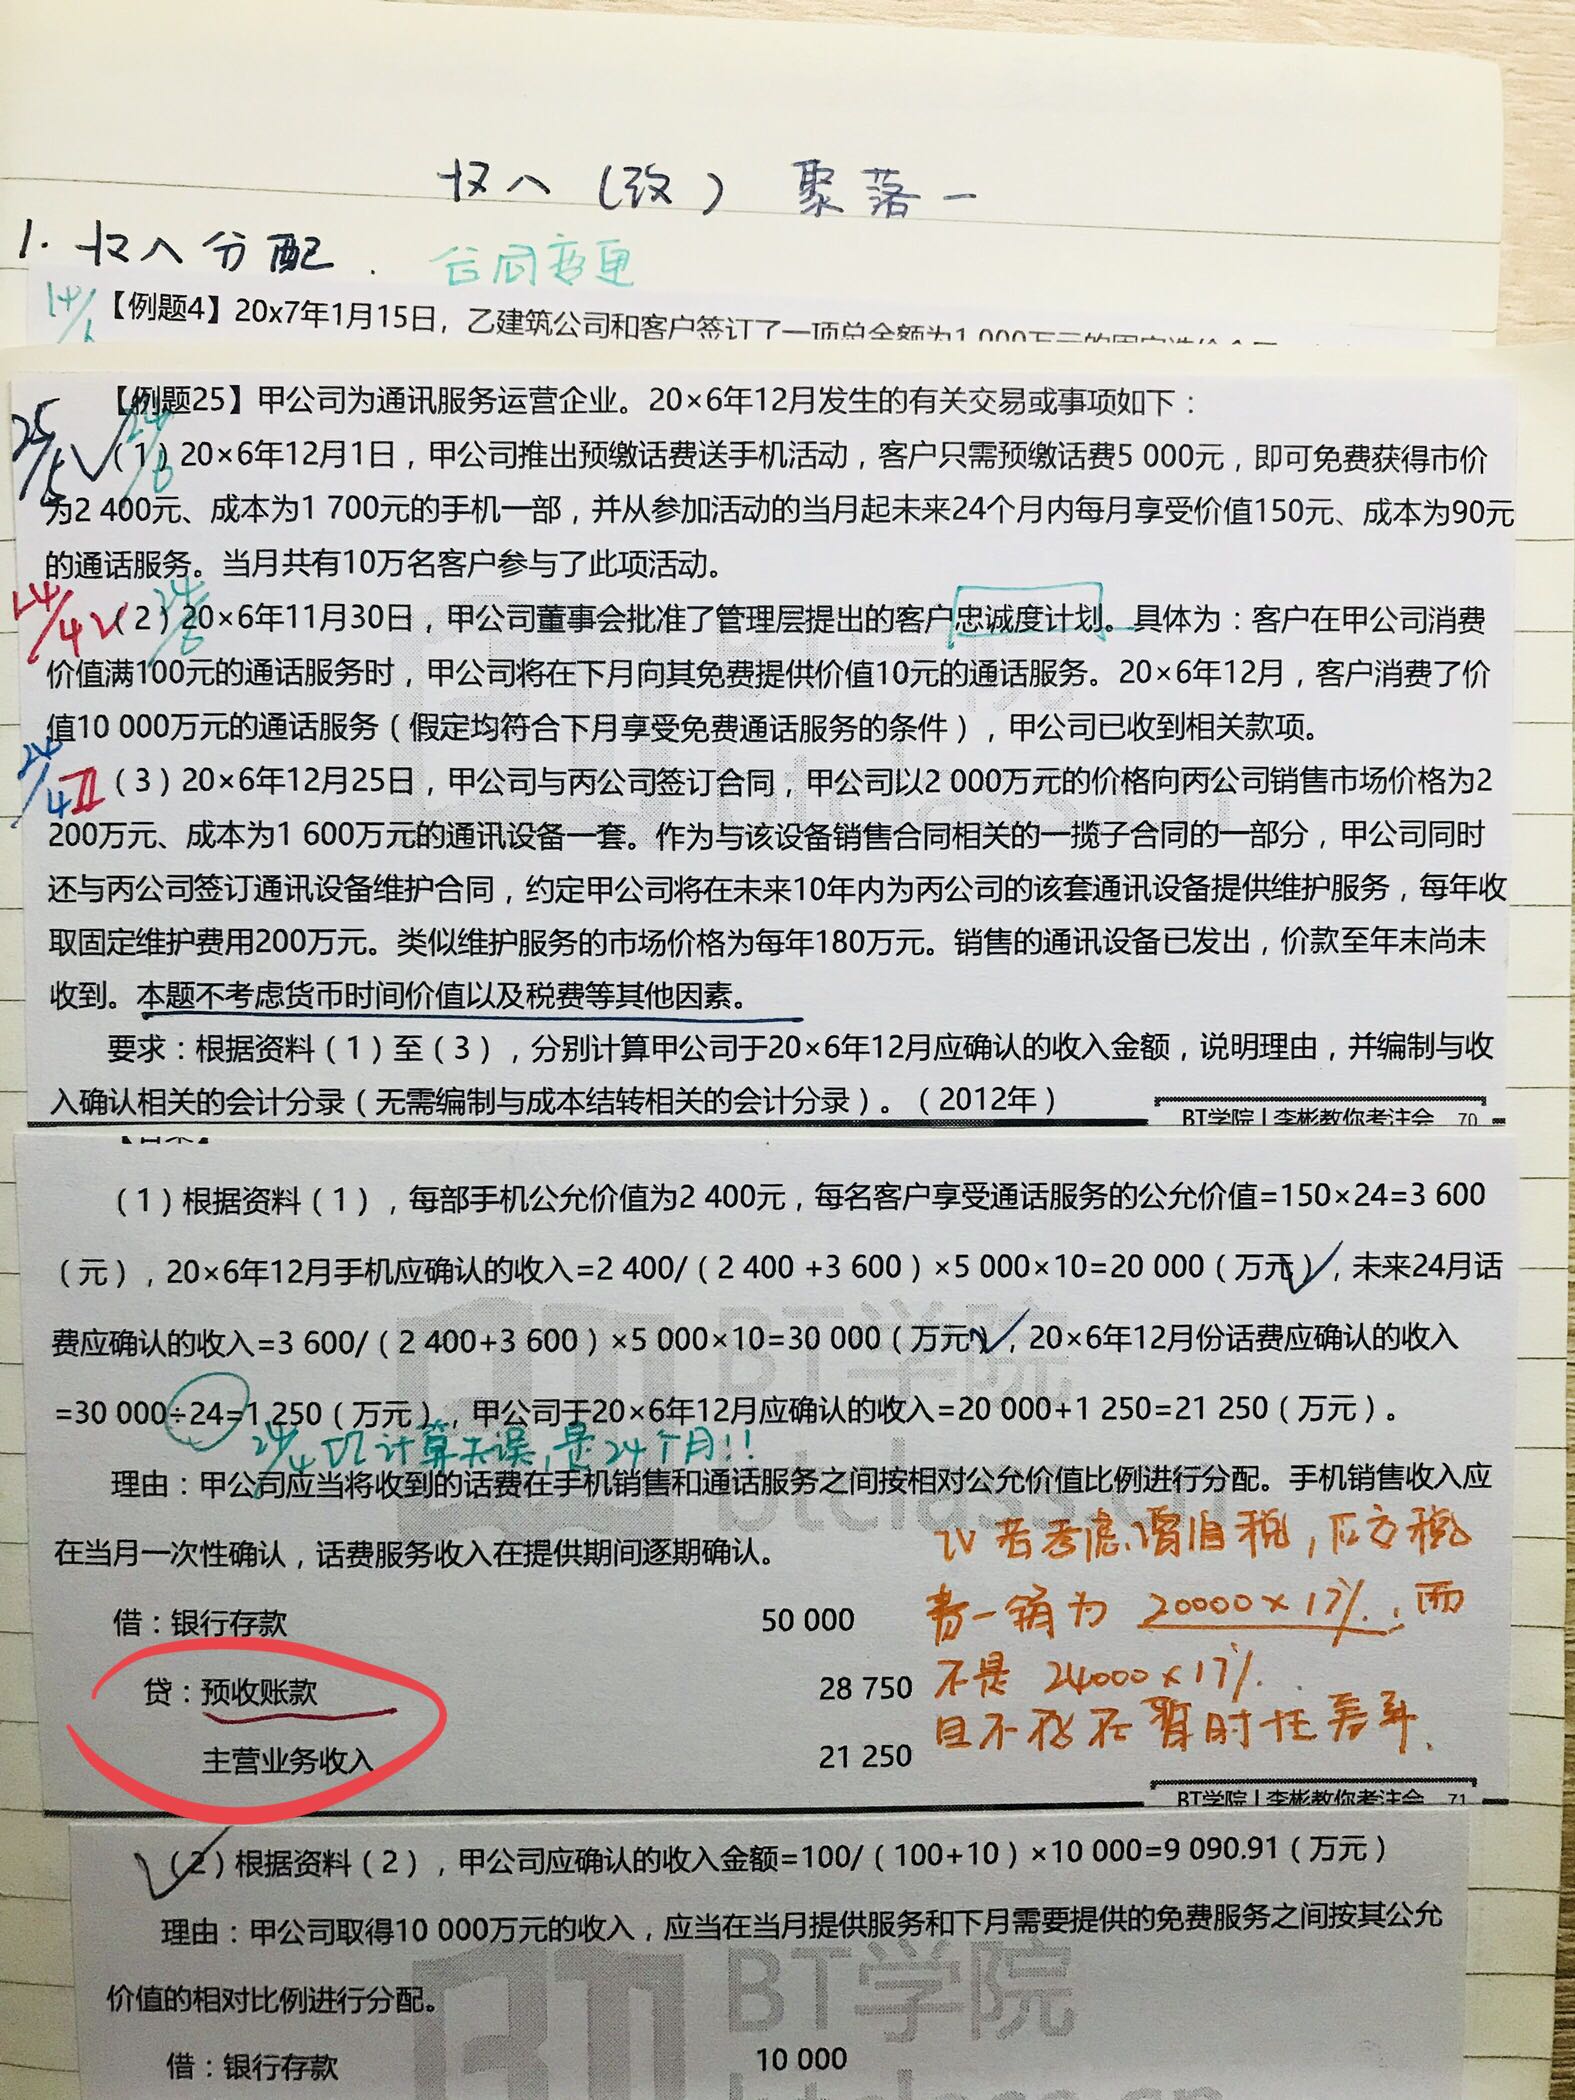 收入(改) 聚落一
1. 收入分配. 合同变更
14/6 【例题4】20x7年1月15日，乙建筑公司和客户签订了一项总金额为1 000万元的固定造价合同
【例题25】甲公司为通讯服务运营企业。20×6年12月发生的有关交易或事项如下：
25/5 24/6 （1）20×6年12月1日，甲公司推出预缴话费送手机活动，客户只需预缴话费5 000元，即可免费获得市价
为2 400元、成本为1 700元的手机一部，并从参加活动的当月起未来24个月内每月享受价值150元、成本为90元
的通话服务。当月共有10万名客户参与了此项活动。
24/4 24/6 （2）20×6年11月30日，甲公司董事会批准了管理层提出的客户忠诚度计划。具体为：客户在甲公司消费
价值满100元的通话服务时，甲公司将在下月向其免费提供价值10元的通话服务。20×6年12月，客户消费了价
值10 000万元的通话服务（假定均符合下月享受免费通话服务的条件），甲公司已收到相关款项。
24/4 II （3）20×6年12月25日，甲公司与丙公司签订合同，甲公司以2 000万元的价格向丙公司销售市场价格为2
200万元、成本为1 600万元的通讯设备一套。作为与该设备销售合同相关的一揽子合同的一部分，甲公司同时
还与丙公司签订通讯设备维护合同，约定甲公司将在未来10年内为丙公司的该套通讯设备提供维护服务，每年收
取固定维护费用200万元。类似维护服务的市场价格为每年180万元。销售的通讯设备已发出，价款至年末尚未
收到。本题不考虑货币时间价值以及税费等其他因素。
要求：根据资料（1）至（3），分别计算甲公司于20×6年12月应确认的收入金额，说明理由，并编制与收
入确认相关的会计分录（无需编制与成本结转相关的会计分录）。（2012年）
BT学院 | 李彬教你考注会 70
（1）根据资料（1），每部手机公允价值为2 400元，每名客户享受通话服务的公允价值=150×24=3 600
（元），20×6年12月手机应确认的收入=2 400/（2 400 +3 600）×5 000×10=20 000（万元），未来24月话
费应确认的收入=3 600/（2 400+3 600）×5 000×10=30 000（万元），20×6年12月份话费应确认的收入
=30 000÷24=1 250（万元），甲公司于20×6年12月应确认的收入=20 000+1 250=21 250（万元）。
24/4 计算失误,是24个月!!
理由：甲公司应当将收到的话费在手机销售和通话服务之间按相对公允价值比例进行分配。手机销售收入应
在当月一次性确认，话费服务收入在提供期间逐期确认。
若考虑增值税,应交税
费一销为 20000×17%,而
不是 24000×17%.
且不存在暂时性差异.
借：银行存款 50 000
贷：预收账款 28 750
主营业务收入 21 250
BT学院 | 李彬教你考注会 71
（2）根据资料（2），甲公司应确认的收入金额=100/（100+10）×10 000=9 090.91（万元）
理由：甲公司取得10 000万元的收入，应当在当月提供服务和下月需要提供的免费服务之间按其公允
价值的相对比例进行分配。
借：银行存款 10 000
BT学院
btclass.cn